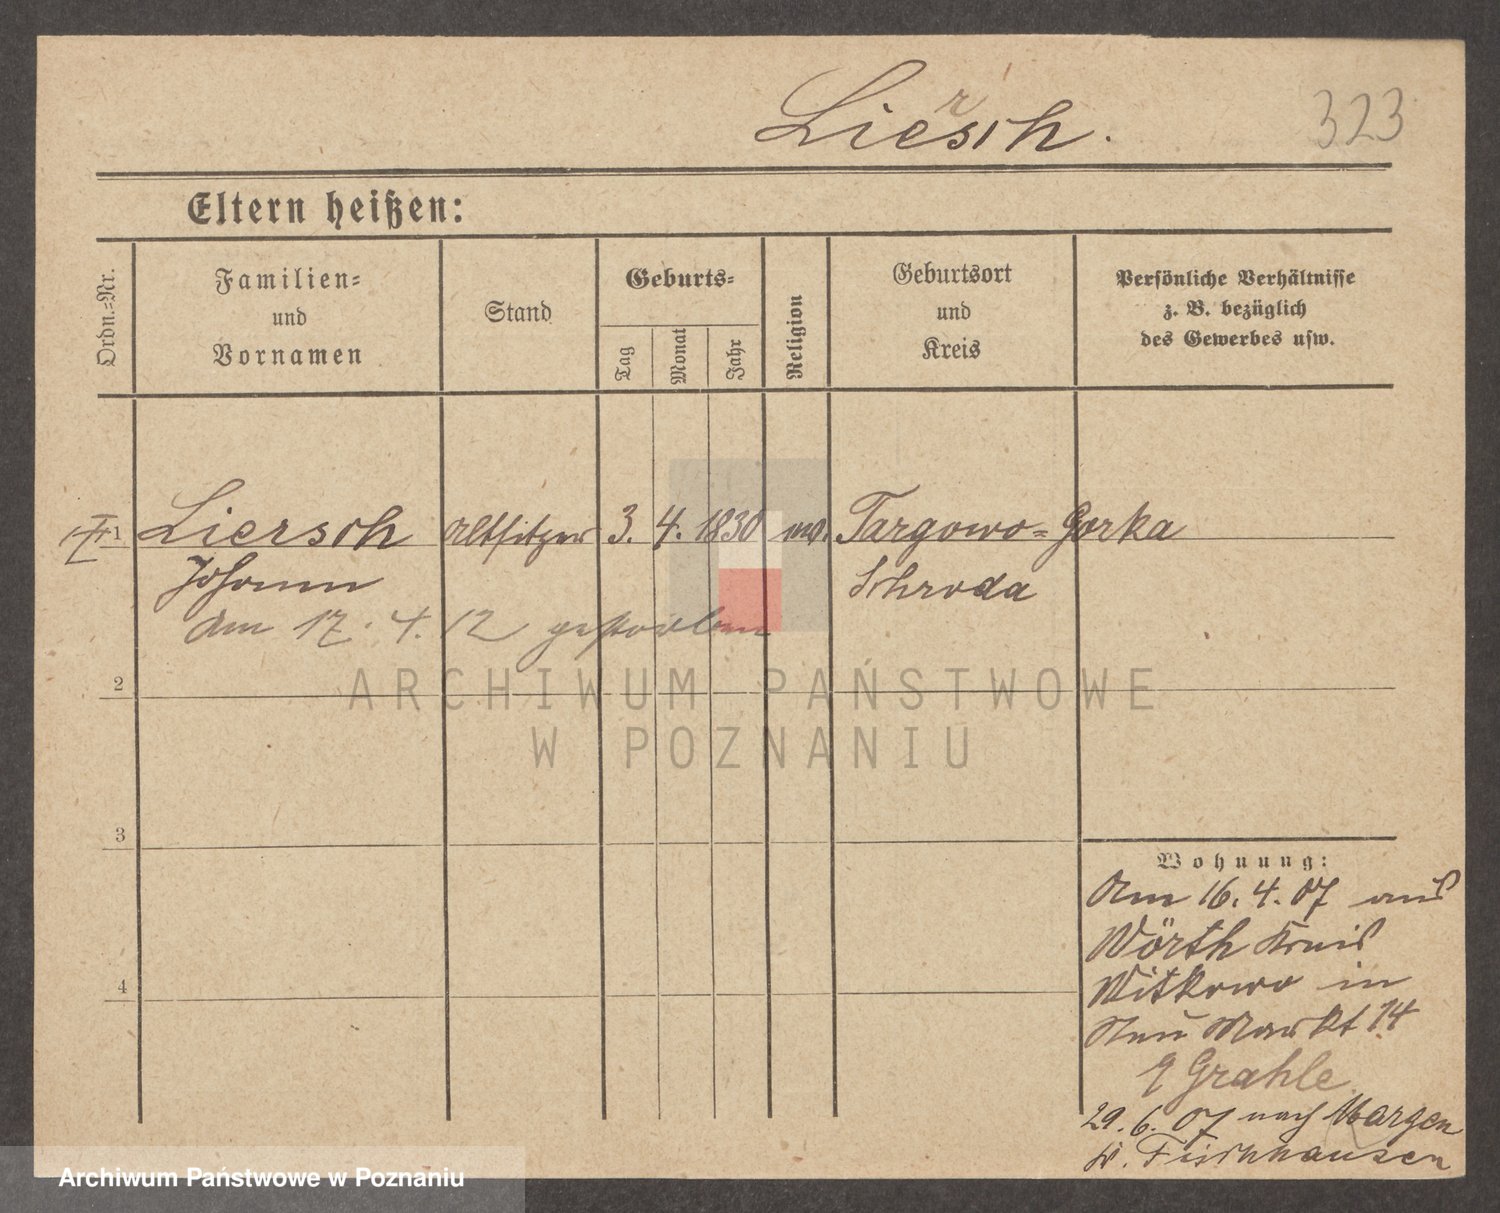 Liersch.
323
Eltern heißen:
Ordn.=Nr.
Familien=
und
Vornamen
Stand
Geburts=
Tag
Monat
Jahr
Religion
Geburtsort
und
Kreis
Persönliche Verhältnisse
z. B. bezüglich
des Gewerbes usw.
1 Liersch Altsitzer 3. 4. 1830 ev. Targowo=Gorka
Johann Schroda
Am 17. 4. 12 gestorben
2
3
4
Wohnung:
Am 16. 4. 07 aus
Wörth Kreis
Witkowo in
Neu Markt 14
Grahle
29. 6. 07 nach Margen
Kr. Fischhausen
ARCHIWUM PAŃSTWOWE
W POZNANIU
Archiwum Państwowe w Poznaniu